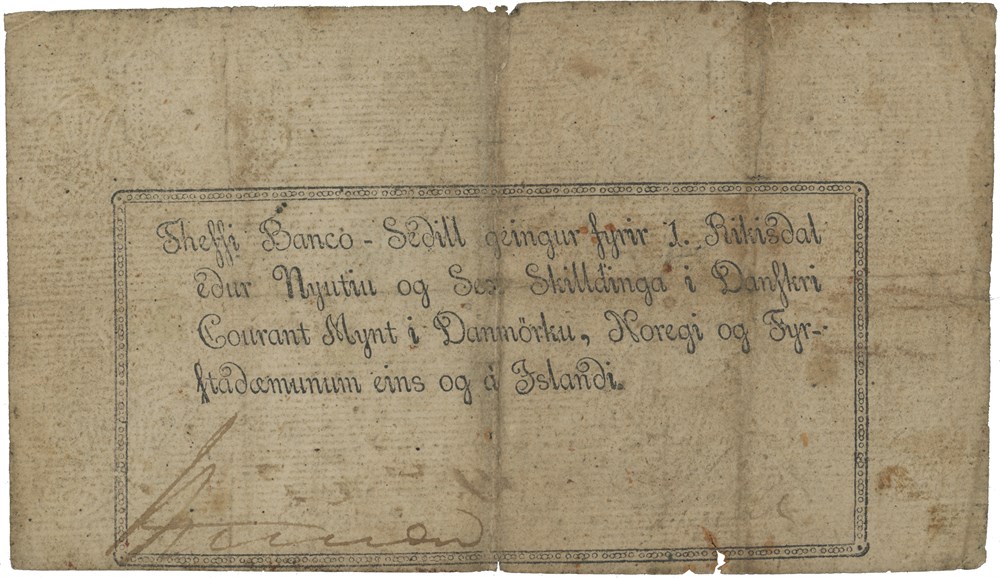 Theſſi Banco - Sedill geingur fyrir 1. Rikisdal
edur Nyutiu og Sex Skilldinga i Danſkri
Courant Mynt i Danmörku, Noregi og Fyr-
ſtadæmunum eins og á Islandi.